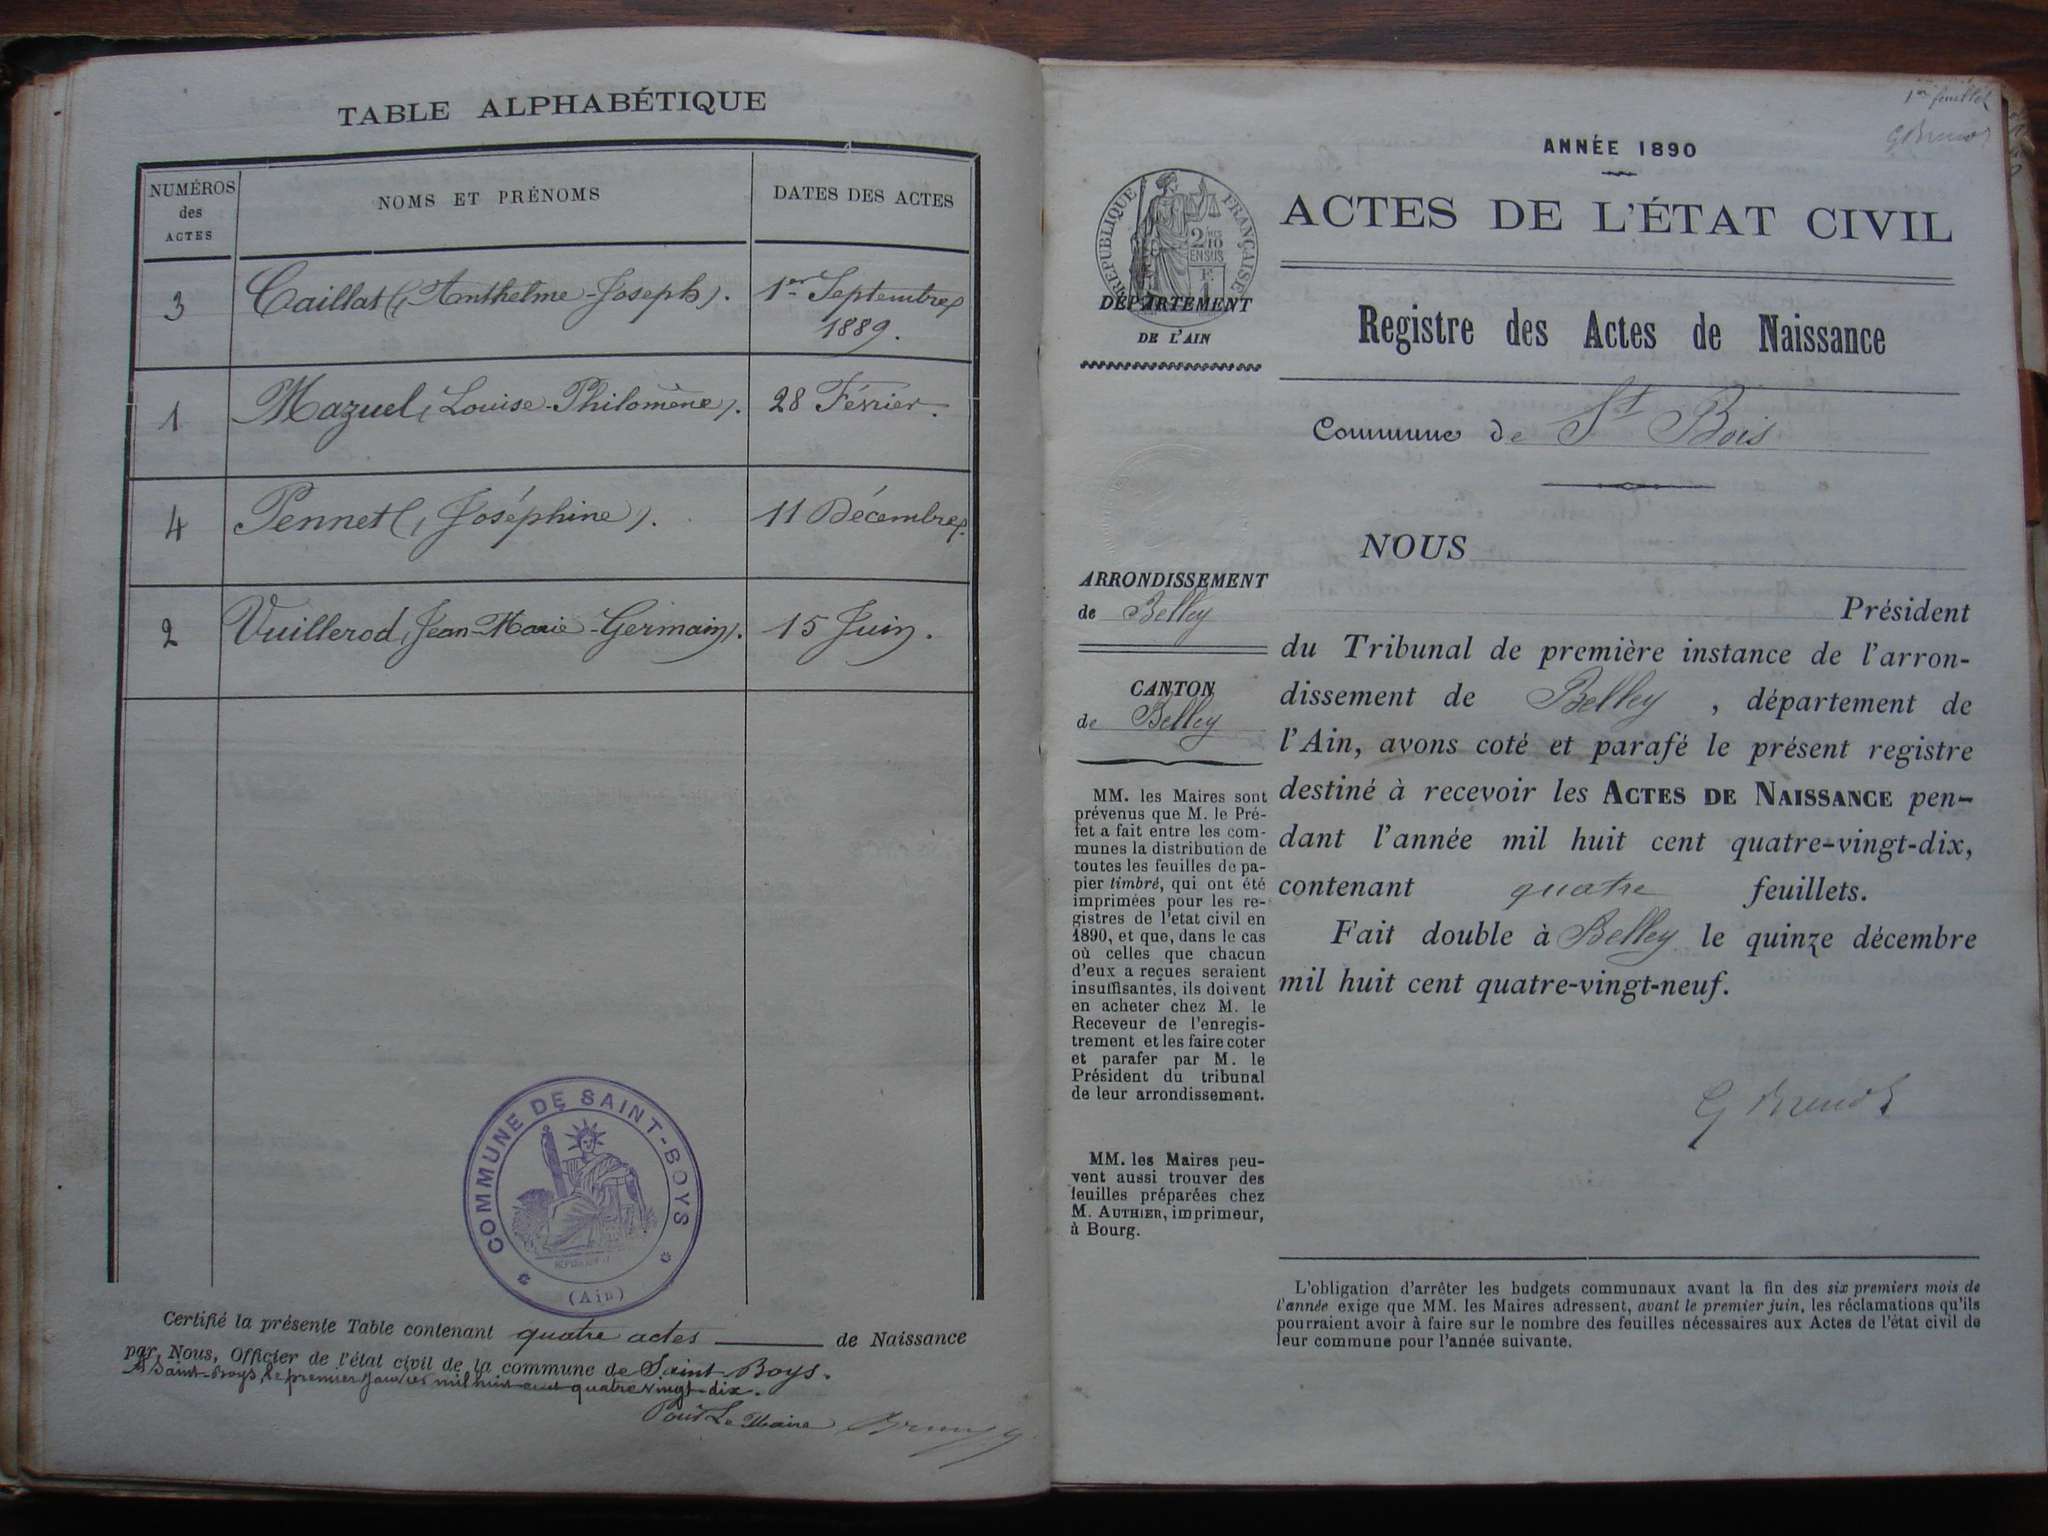 TABLE ALPHABÉTIQUE
NUMÉROS
des
ACTES
NOMS ET PRÉNOMS
DATES DES ACTES
3 Caillat (Anthelme-Joseph). 1er Septembre
1889.
1 Mazuel (Louise-Philomène). 28 Février.
4 Pennet (Joséphine). 11 Décembre.
2 Vuillerod (Jean-Marie-Germain). 15 Juin.
COMMUNE DE SAINT-BOYS
(Ain)
Certifié la présente Table contenant quatre actes de Naissance
par Nous, Officier de l'état civil de la commune de Saint-Boys.
A Saint-Boys, le premier janvier mil huit cent quatre vingt-dix.
Pour Le Maire
1er feuillet
ANNÉE 1890
ACTES DE L'ÉTAT CIVIL
RÉPUBLIQUE FRANÇAISE
2/10
EN SUS
DÉPARTEMENT
DE L'AIN
Registre des Actes de Naissance
Commune de St Bois
NOUS
Président
du Tribunal de première instance de l'arron-
dissement de Belley, département de
l'Ain, avons coté et parafé le présent registre
destiné à recevoir les ACTES DE NAISSANCE pen-
dant l'année mil huit cent quatre-vingt-dix,
contenant quatre feuillets.
Fait double à Belley le quinze décembre
mil huit cent quatre-vingt-neuf.
ARRONDISSEMENT
de Belley
CANTON
de Belley
MM. les Maires sont
prévenus que M. le Pré-
fet a fait entre les com-
munes la distribution de
toutes les feuilles de pa-
pier timbré, qui ont été
imprimées pour les re-
gistres de l'etat civil en
1890, et que, dans le cas
où celles que chacun
d'eux a reçues seraient
insuffisantes, ils doivent
en acheter chez M. le
Receveur de l'enregis-
trement et les faire coter
et parafer par M. le
Président du tribunal
de leur arrondissement.
MM. les Maires peu-
vent aussi trouver des
feuilles préparées chez
M. AUTHIER, imprimeur,
à Bourg.
L'obligation d'arrêter les budgets communaux avant la fin des six premiers mois de
l'année exige que MM. les Maires adressent, avant le premier juin, les réclamations qu'ils
pourraient avoir à faire sur le nombre des feuilles nécessaires aux Actes de l'état civil de
leur commune pour l'année suivante.